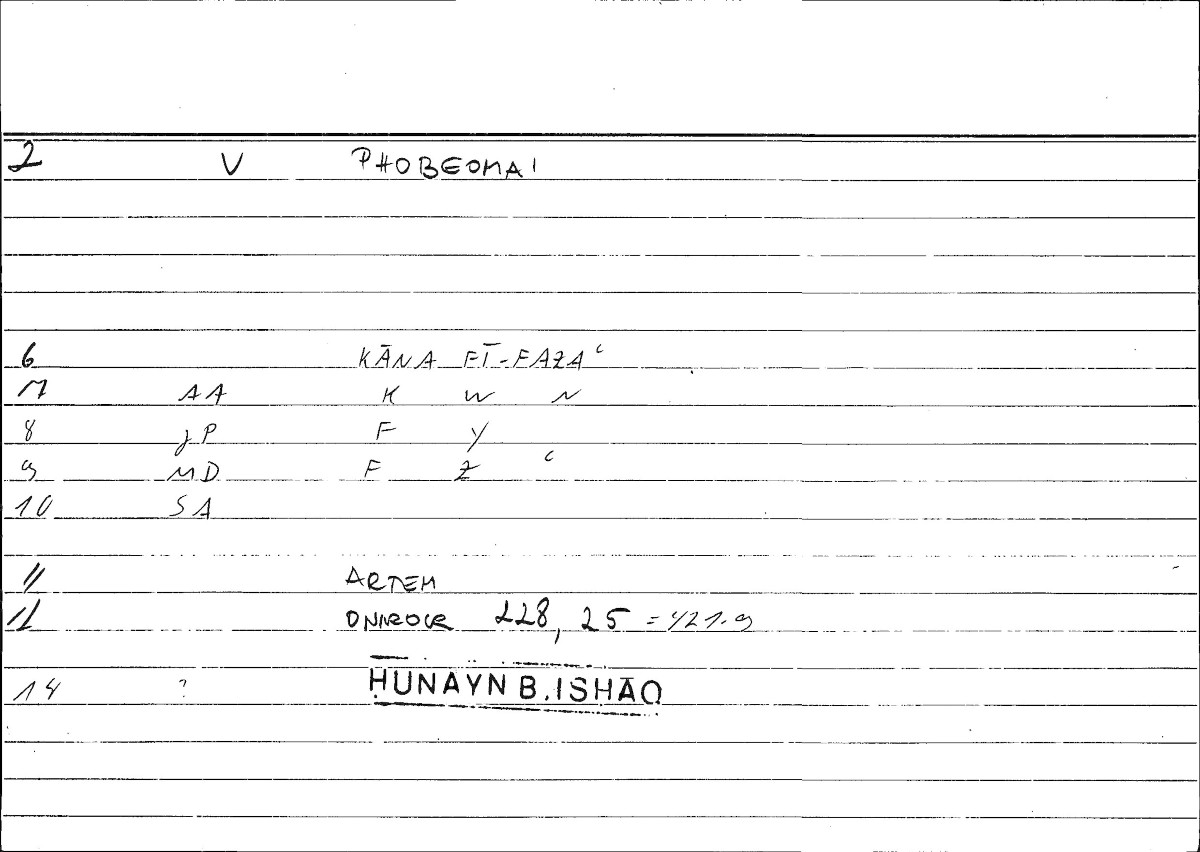 2 V PHOBEOMAI
6 KĀNA FĪ-FAZAʿ
7 AA K W N
8 JP F Y
9 MD F Z ʿ
10 SA
11 ARTEM
12 ONIROCR 228, 25 = 421.9
14 ? ḤUNAYN B. ISḤĀQ